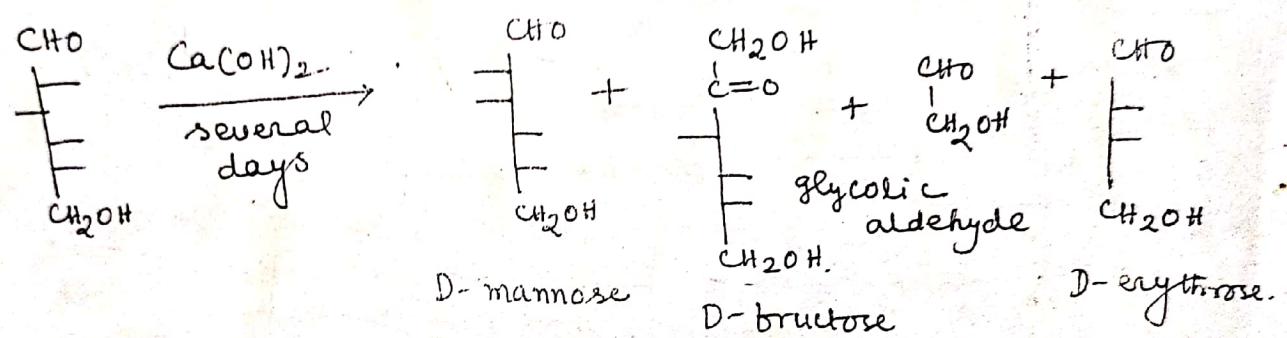 CHO
CH2OH
Ca(OH)2..
several
days
CHO
CH2OH
D- mannose
+
CH2OH
C=O
CH2OH.
D- fructose
+
CHO
CH2OH
glycolic
aldehyde
+
CHO
CH2OH
D- erythrose.